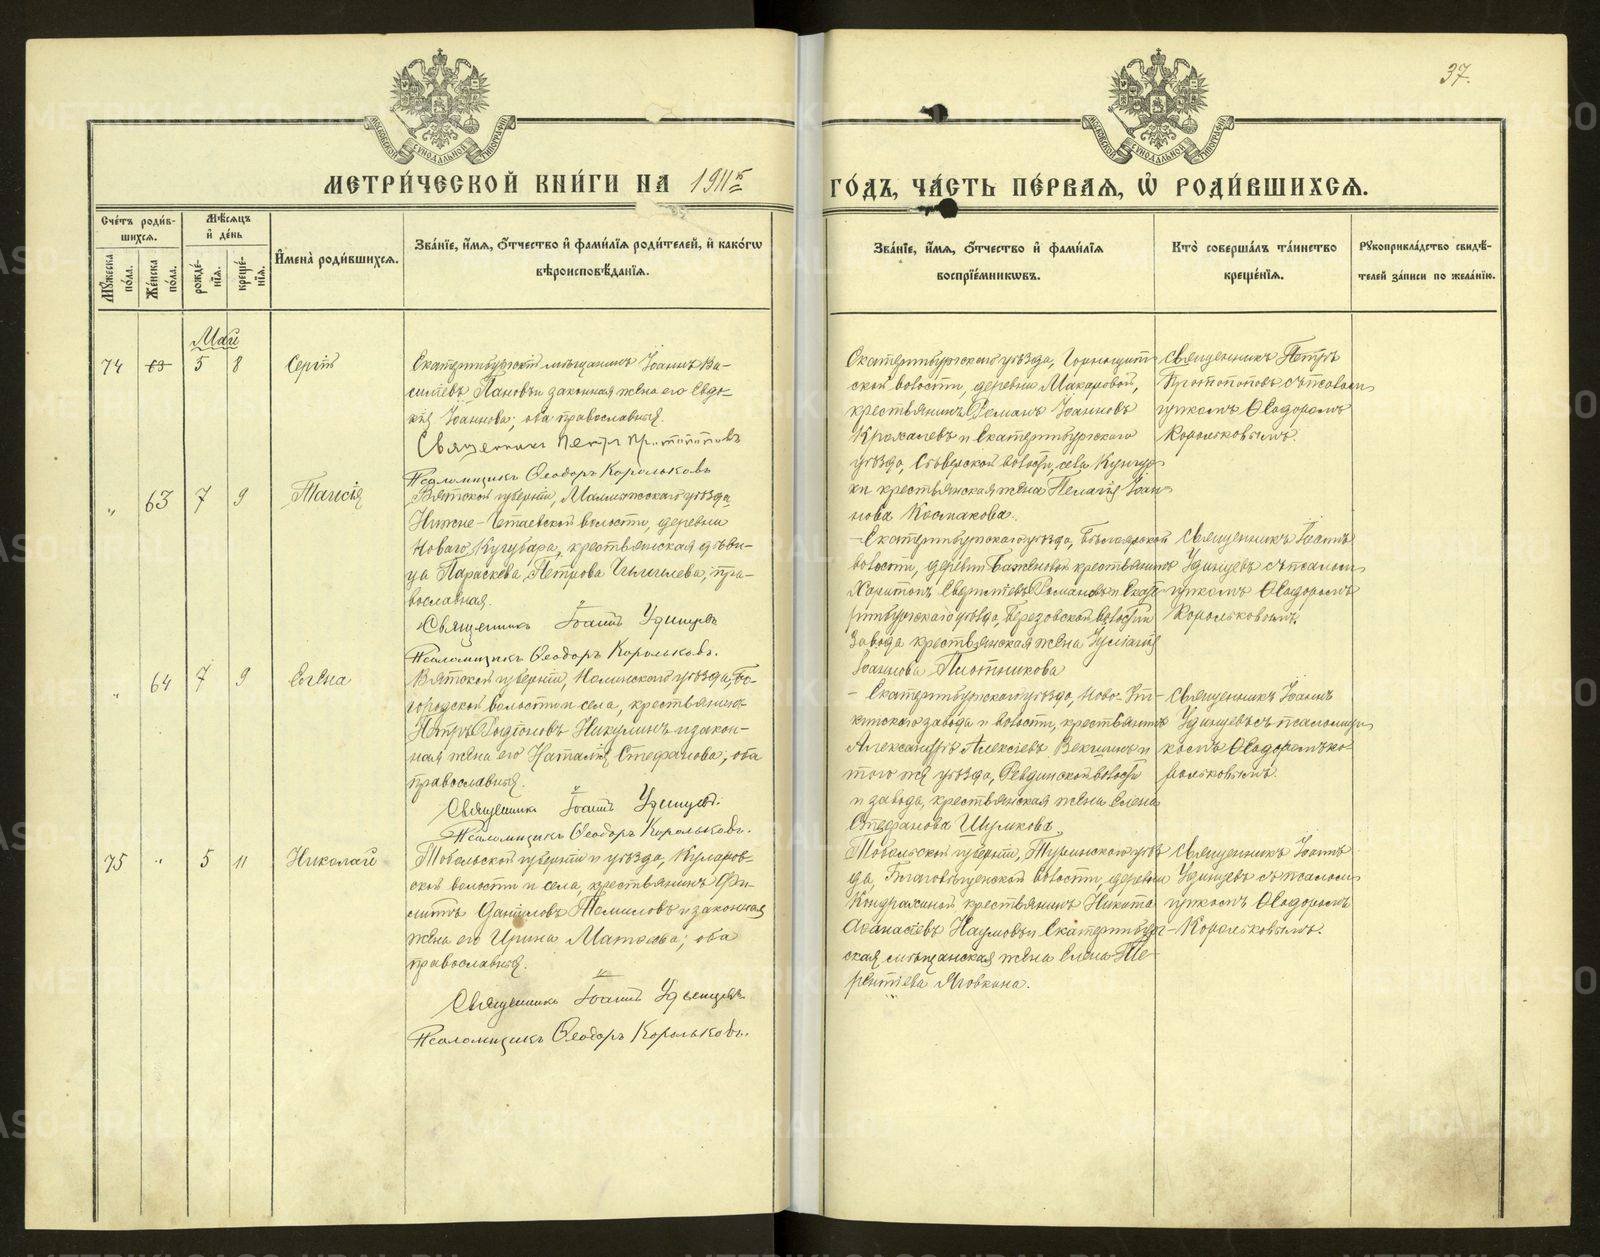 37.
МОСКОВСКОЙ СѴНОДАЛЬНОЙ ТИПОГРАФІИ
МОСКОВСКОЙ СѴНОДАЛЬНОЙ ТИПОГРАФІИ
МЕТРИ́ЧЕСКОЙ КНИ́ГИ НА 1911й ГО́ДЪ, ЧА́СТЬ ПЕ́РВАЯ, Ѡ҆ РОДИ́ВШИХСѦ.
Сче́тъ роди́в-
шихсѧ.
Мꙋ́жеска по́ла.
Же́нска по́ла.
Мѣ́сѧцъ
и҆ де́нь
рожде́-
нїѧ.
креще́-
нїѧ.
И҆мена̀ роди́вшихсѧ.
Зва́нїе, и҆́мѧ, ѻ҆́тчество и҆ фами́лїѧ роди́телей, и҆ како́гѡ
вѣроисповѣ́данїѧ.
Зва́нїе, и҆́мѧ, ѻ҆́тчество и҆ фами́лїѧ
воспрїе́мникѡвъ.
Кто̀ соверша́лъ та́инство
креще́нїѧ.
Рꙋкоприкла́дство свидѣ́-
телей за́писи по жела́нїю.
Май
74 63 5 8 Сергій
Екатеринбургскій мѣщанинъ Іоаннъ Ва-
сильевъ Пановъ и законная жена его Евдо-
кія Іоаннова; оба православные.
Священникъ Петръ Протопоповъ
Псаломщикъ Ѳеодоръ Корольковъ
Екатеринбургскаго уѣзда, Горнощит-
ской волости, деревни Макаровой,
крестьянинъ Романъ Іоанновъ
Крохалевъ и Екатеринбургскаго
уѣзда, волости, села Кунгур-
ки крестьянская жена Пелагія Іоан-
нова Космакова.
Священникъ Петръ
Протопоповъ съ псалом-
щикомъ Ѳеодоромъ
Корольковымъ.
„ 63 7 9 Таисія
Вятской губерніи, Малмыжскаго уѣзда,
Нижне-Четаевской волости, деревни
Новаго Кугубара, крестьянская дѣви-
ца Параскева Петрова, пра-
вославная.
Священникъ Іоаннъ Удинцевъ
Псаломщикъ Ѳеодоръ Корольковъ.
Екатеринбургскаго уѣзда, Бѣлоярской
волости, деревни Баженовой крестьянинъ
Харитонъ Романовъ и Екате-
ринбургскаго уѣзда, Березовской волости и
завода крестьянская жена Іуліанія
Іоаннова Плотникова
Священникъ Іоаннъ
Удинцевъ съ псалом-
щикомъ Ѳеодоромъ
Корольковымъ.
„ 64 7 9 Елена
Вятской губерніи, Нолинскаго уѣзда, Бо-
городской волости и села, крестьянинъ
Петръ Родіоновъ Никулинъ и закон-
ная жена его Наталія Стефанова; оба
православные.
Священникъ Іоаннъ Удинцевъ.
Псаломщикъ Ѳеодоръ Корольковъ.
Екатеринбургскаго уѣзда, Ново-Ут-
кинскаго завода и волости, крестьянинъ
Александръ Алексіевъ Векшинъ и
того же уѣзда, Ревдинской волости
и завода, крестьянская жена Елена
Стефанова Шумкова.
Священникъ Іоаннъ
Удинцевъ съ псаломщи-
комъ Ѳеодоромъ Ко-
рольковымъ.
75 „ 5 11 Николай
Тобольской губерніи и уѣзда, Куларов-
ской волости и села, крестьянинъ Фи-
липпъ Даниловъ Томиловъ и законная
жена его Ирина Матѳіева; оба
православные.
Священникъ Іоаннъ Удинцевъ.
Псаломщикъ Ѳеодоръ Корольковъ.
Тобольской губерніи, Туринскаго уѣз-
да, Благовѣщенской волости, деревни
Кондрахиной крестьянинъ Никита
Аѳанасіевъ Наумовъ и Екатеринбург-
ская мѣщанская жена Елена Те-
рентіева Яговкина.
Священникъ Іоаннъ
Удинцевъ съ псалом-
щикомъ Ѳеодоромъ
Корольковымъ.